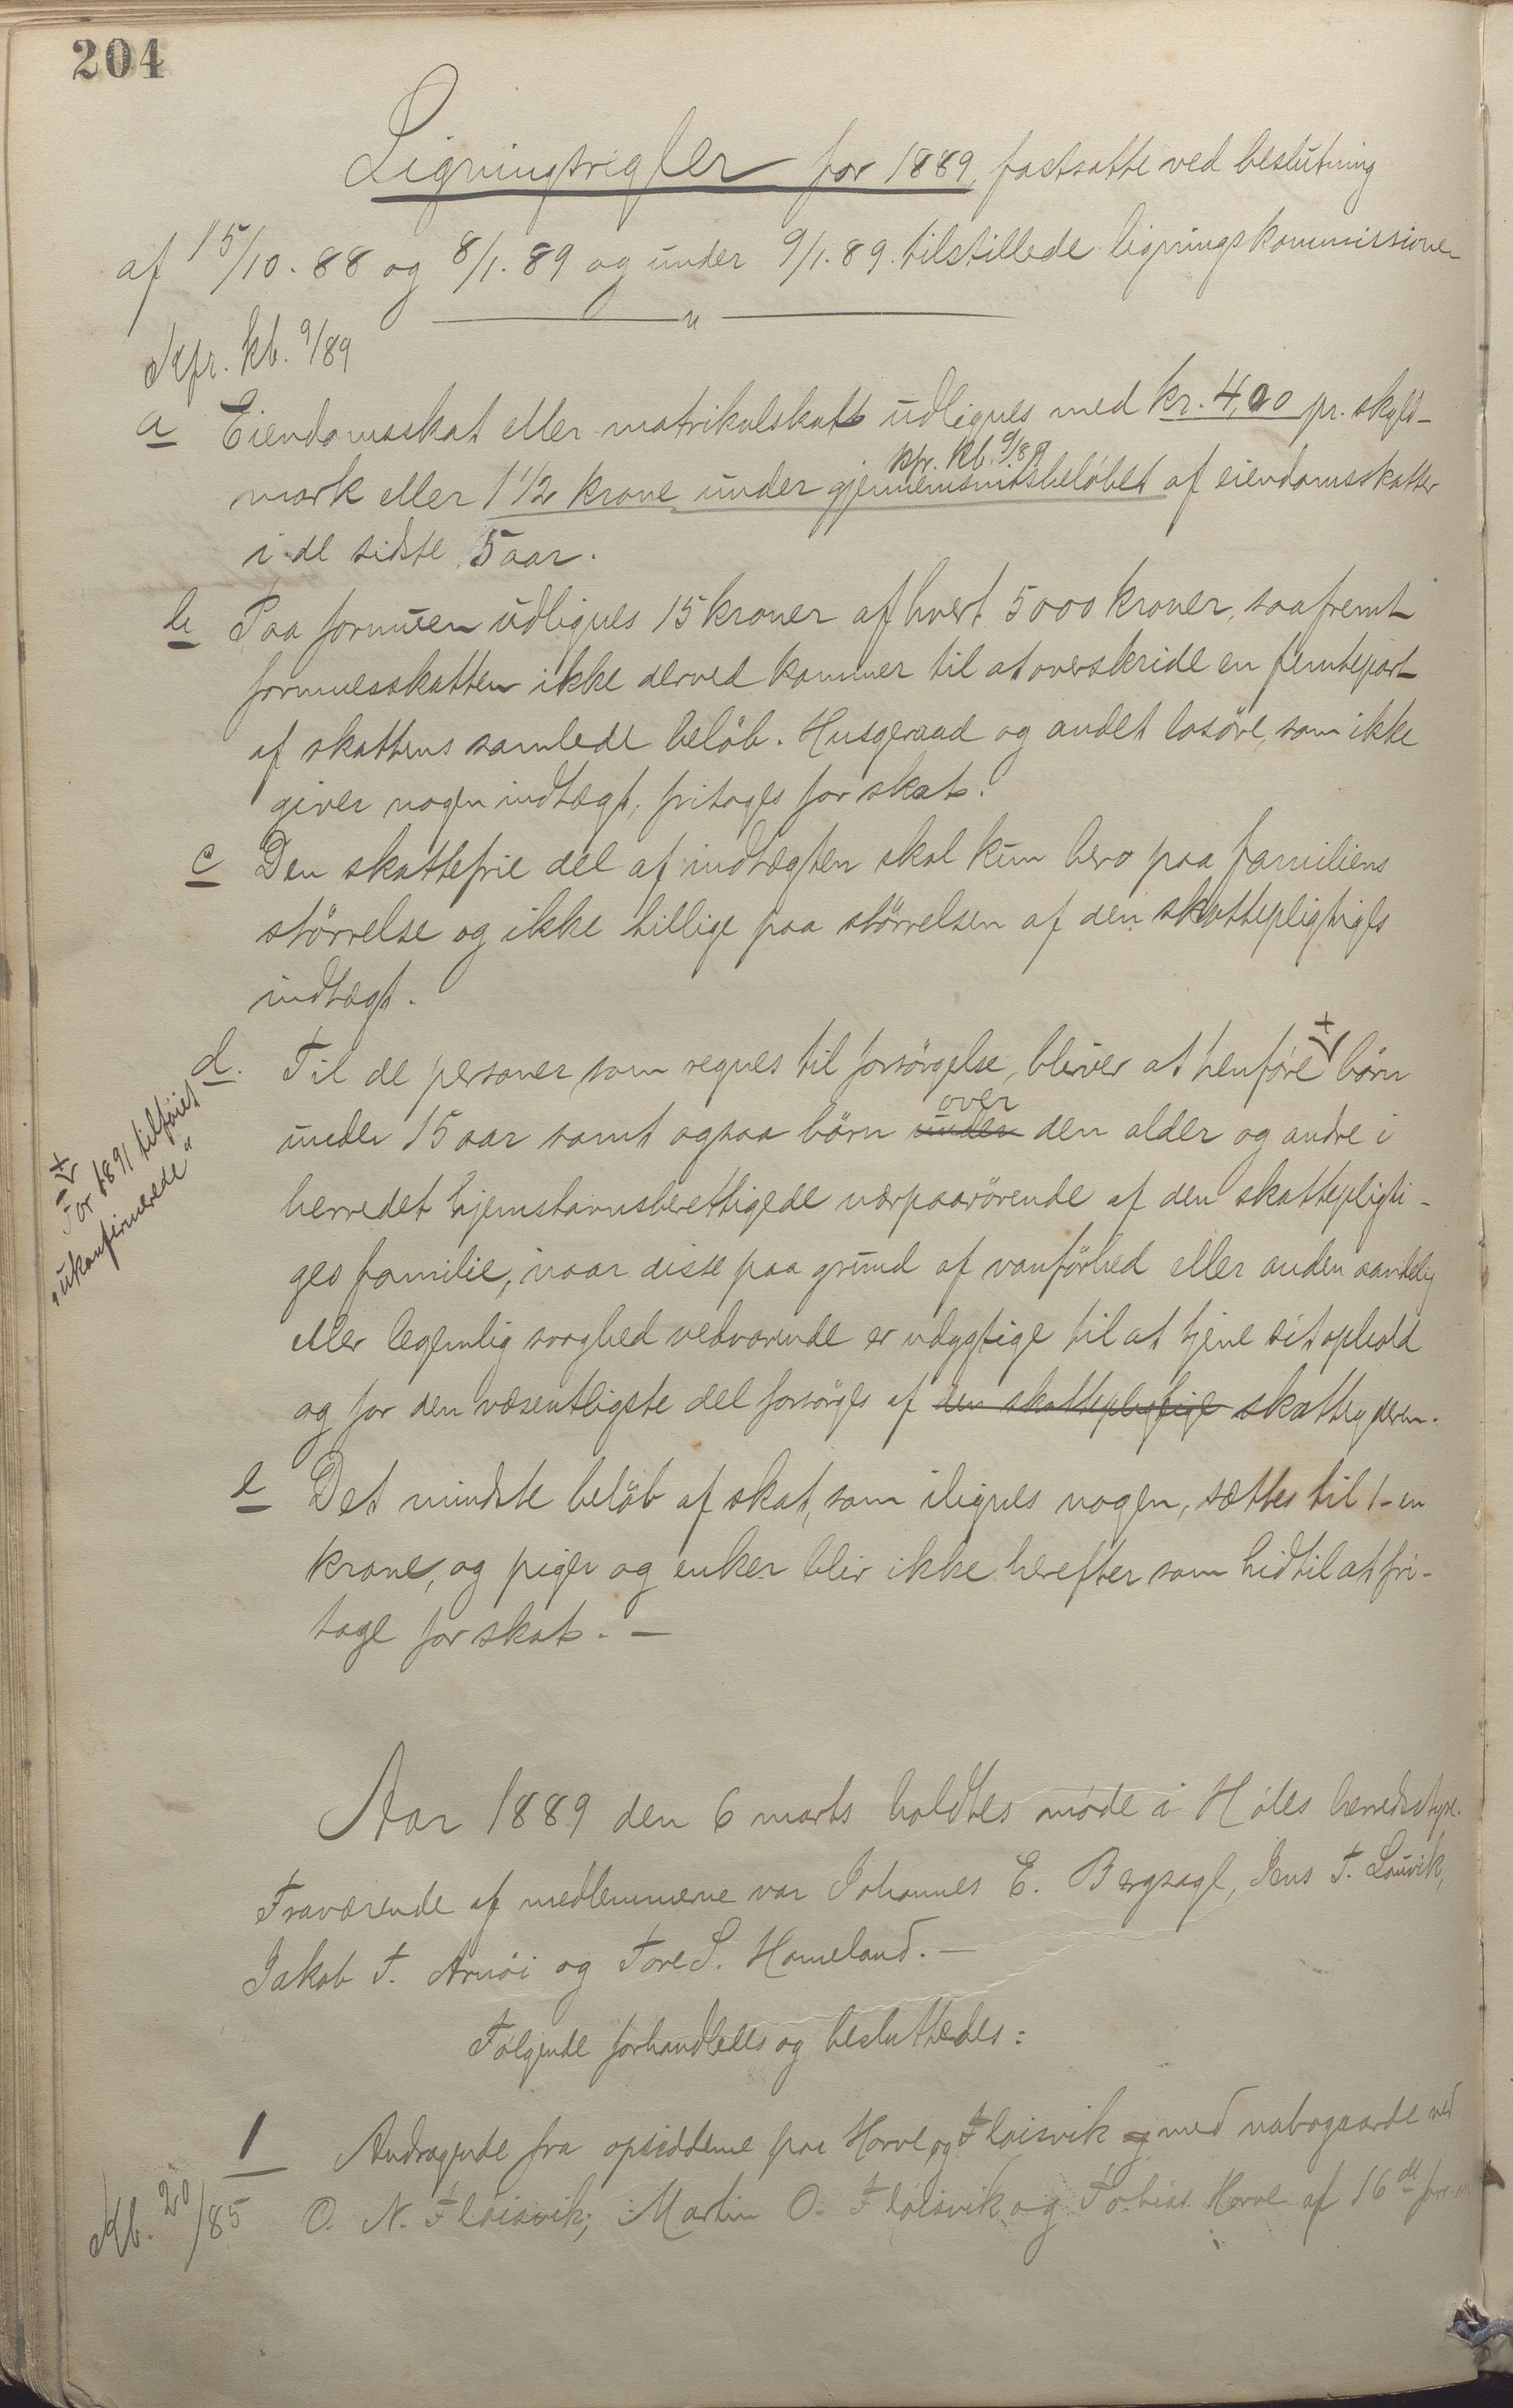 204
Ligningsregler for 1889, fastsatte ved beslutning
af 15/10. 88 og 8/1. 89 og under 9/1. 89. tilstillede ligningskommissionen
Kfr. kb. 9/89
a Eiendomsskat eller matrikulskatt udlignes med kr. 4,00 pr. skyld-
kfr. kb. 9/89
mark eller 1 1/2 krone under gjennemsnitsbeløbet af eiendomsskatter
i de sidste 5 aar.
b Paa formuen udlignes 15 kroner af hvert 5000 kroner, saafremt
formuesskatten ikke derved kommer til at overskride en femtepart
af skattens samlede beløb. Husgeraad og andet løsøre, som ikke
giver nogen indtægt, fritages for skat.
c Den skattefrie del af indtægten skal kun bero paa familiens
størrelse og ikke tillige paa størrelsen af den skattepligtiges
indtægt.
d. Til de personer, som regnes til forsørgelse, bliver at henføre + børn
under 15 aar samt ogsaa børn under over den alder og andre i
herredet hjemstavnsberettigede nærpaarørende af den skattepligti-
ges familie, naar disse paa grund af vanførhed eller anden aandelig
eller legemlig svaghed vedvarende er udygtige til at tjene sit ophold
og for den væsentligste del forsørges af den skattepligtige skatteyderen.
+ For 1891 tilføiet
"ukonfirmerede"
e Det mindste beløb af skat, som ilignes nogen, sættes til 1 - en
krone, og piger og enker blir ikke herefter som hidtil at fri-
tage for skat. -
Aar 1889 den 6 marts holdtes møde i Høles herredsstyre.
Fraværende af medlemmerne var Johannes E. Bergsagel, Jens T. Lauvik,
Jakob T. Arnøi og Tore S. Hameland. -
Følgende forhandledes og besluttedes:
1 Andragende fra opsidderne paa Horve og Fløisvik og med nabogaarde ved
Kb. 20/85 O. N. Fløisvik, Martin O. Fløisvik og Tobias Horve af 16de forr.